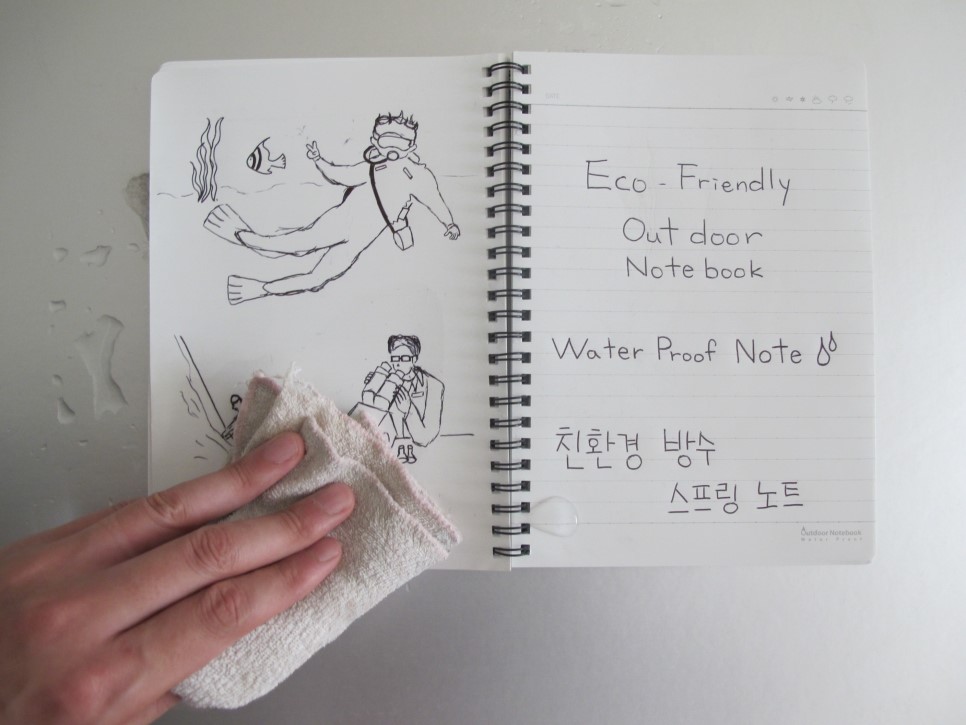 Eco-Friendly
Outdoor
Notebook
Water Proof Note
친환경 방수
스프링 노트
Outdoor Notebook
Water Proof